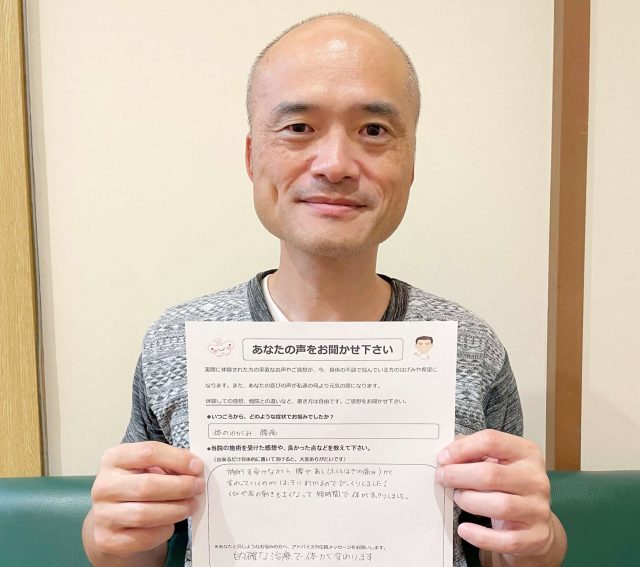 あなたの声をお聞かせ下さい
実際に体験された方の率直なお声やご感想が、今、身体の不調で悩んでいる方のはげみや希望に
なります。また、あなたの喜びの声が私達の何より元気の源になります。
体験しての感想、他院との違いなど、書き方は自由です。ご感想をお聞かせ下さい。
●いつごろから、どのような症状でお悩みでしたか？
体のゆがみ 腰痛
●当院の施術を受けた感想や、良かった点などを教えて下さい。
(出来るだけ具体的に書いて頂けると、大変ありがたいです)
施術を受けながら 腰やあし(ふくらはぎの痛み)が
変わっていくのがはっきりわかるのでびっくりしました!
くびや肩の動きもよくなって 短時間で体がすっきりしました。
※あなたと同じようなお悩みの方へ、アドバイスや応援メッセージをお願いします。
的確な治療で体が変わります